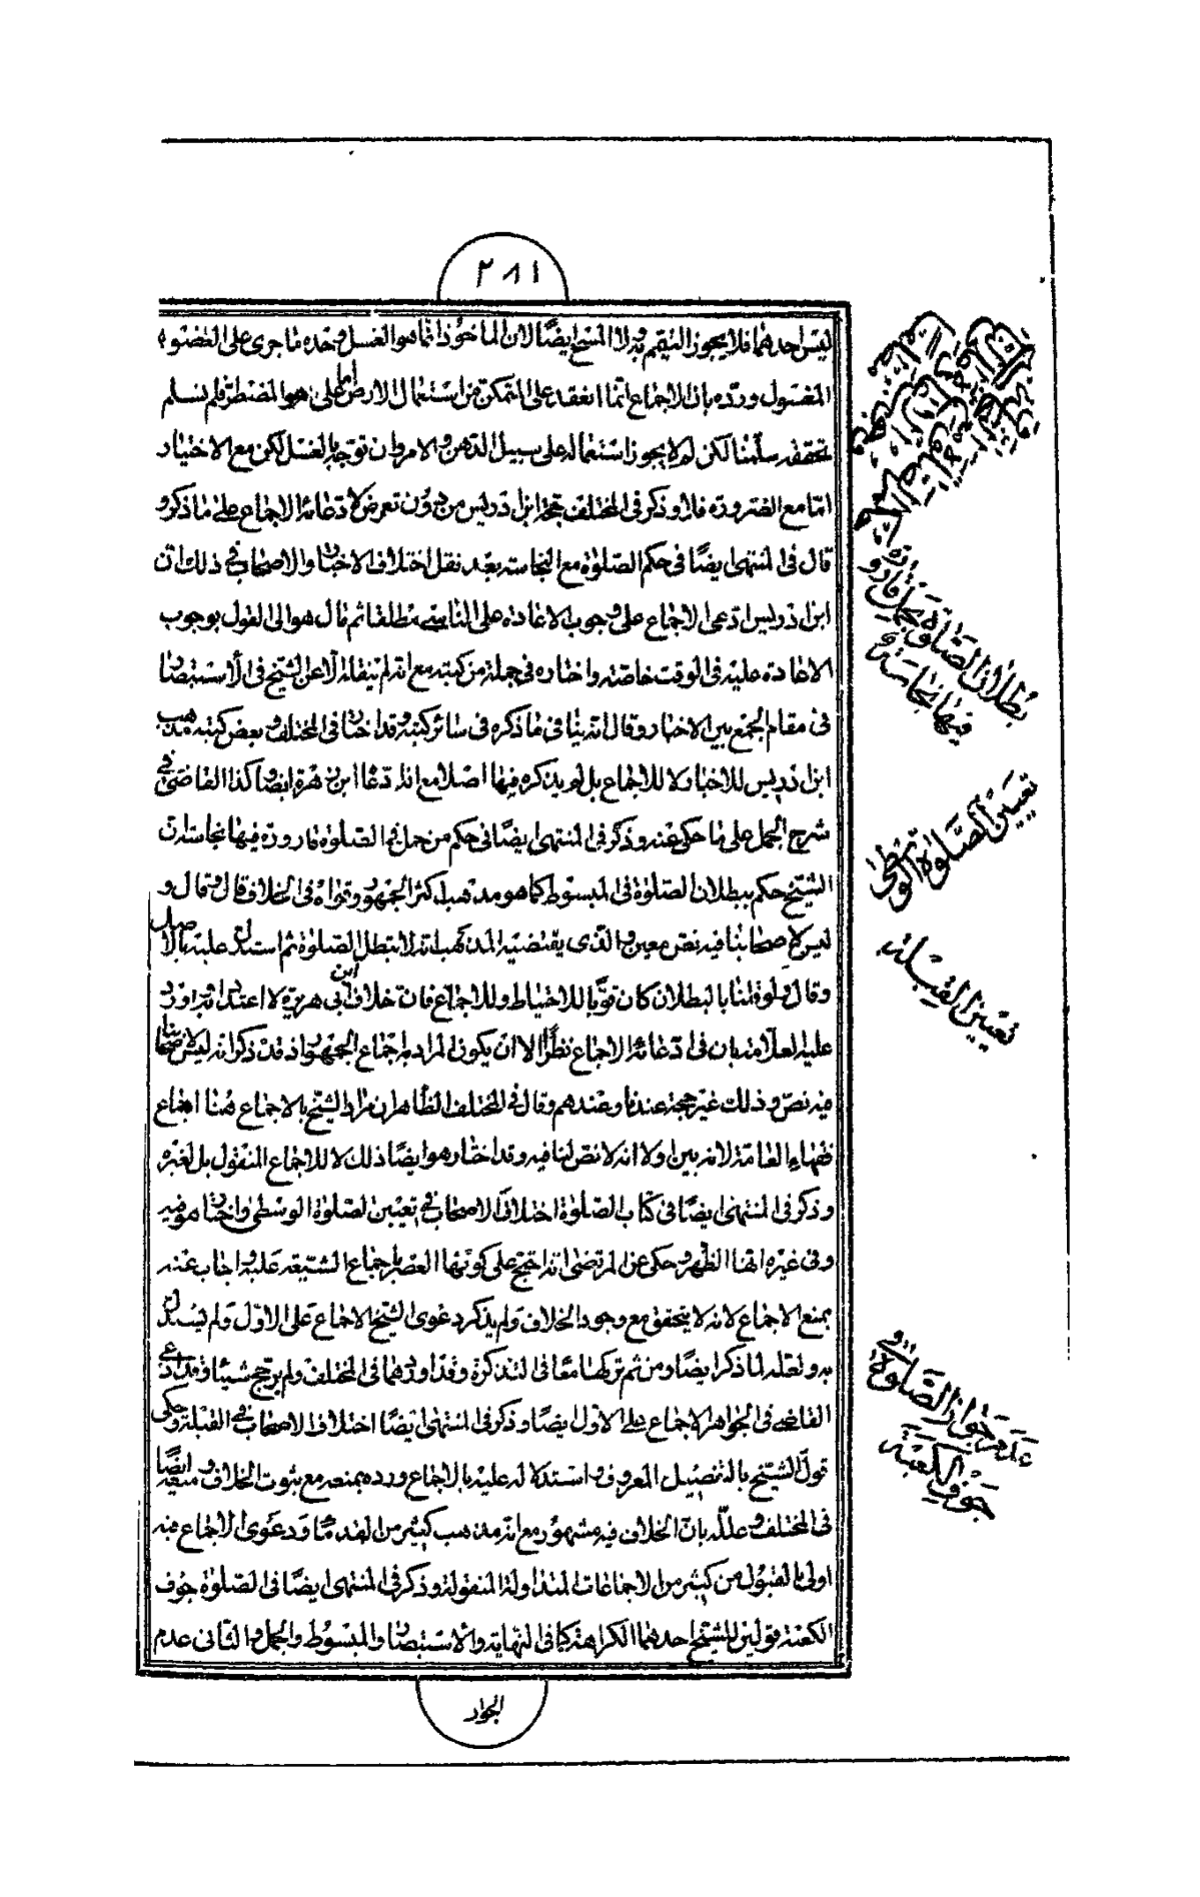 ٢٨١
ليس احدهما فلا يجوز التيمم به ولا المسح ايضًا لان الماخوذ انما هو الغسل وحده ما جرى على العضو
المغسول ورده بان الاجماع انما انعقد على المتمكن من استعمال الارض اما على هو المضطر فلم نسلم
تحققه سلمنا لكن لم لا يجوز استعماله على سبيل الدهن والامر وان توجه بالغسل لكن مع الاختيار
امّا مع الضرورة فلا وذكر في المختلف حجة ابن ادريس من دون تعرض لادعائه الاجماع على ما ذكر و
قال في المنتهى ايضًا في حكم الصلوة مع النجاسة بعد نقل اختلاف الاخبار والاصحاب في ذلك ان
ابن ادريس ادعى الاجماع على وجوب الاعادة على الناسي مطلقا ثم قال هو الى القول بوجوب
الاعادة عليه في الوقت خاصّة واختاره في جملة من كتبه مع انه لم ينقله الا عن الشيخ في الاستبصار
في مقام الجمع بين الاخبار وقال انه ينافي ما ذكره في سائر كتبه وقد اختار في المختلف وبعض كتبه مذهب
ابن ادريس للاخبار لا للاجماع بل لم يذكره فيها اصلا مع انه ادعاه ابن زهرة ايضا وكذا القاضي في
شرح الجمل على ما حكي عنه وذكر في المنتهى ايضًا في حكم من حمل في الصلوة قارورة فيها نجاسة ان
الشيخ حكم ببطلان الصلوة في المبسوط كما هو مذهب اكثر الجمهور وقواه في الخلاف قال وقال و
ليس لاصحابنا فيه نص معين والذي يقتضيه المذهب انه لا تبطل الصلوة ثم استدل عليه بالاصل
وقال ولو قلنا بالبطلان كان قويّا للاحتياط وللاجماع فان خلاف ابن ابي هريرة لا اعتداد به واورد
عليه العلامة بان في ادعائه الاجماع نظرًا الا ان يكون المراد به اجماع الجمهور اذ قد ذكر انه ليس لاصحابنا
فيه نصّ وذلك غير حجة عندنا وعندهم وقال في المختلف الظاهر ان مراد الشيخ بالاجماع هنا اجماع
فقهاء العامّة لانه بين اولا انه لا نص لنا فيه وقد اختار هو ايضًا ذلك لا للاجماع المنقول بل لغيره
وذكر في المنتهى ايضًا في كتاب الصّلوة اختلاف الاصحاب في تعيين الصّلوة الوسطى واختار هو فيه
وفي غيره انها الظهر وحكى عن المرتضى انه احتج على كونها العصر باجماع الشيعة عليه واجاب عنه
بمنع الاجماع لانه لا يتحقق مع وجود الخلاف ولم يذكر دعوى الشيخ الاجماع على الاوّل ولم يستدل
به ولعله لما ذكر ايضًا ومن ثم تركهما معًا في التذكرة وقد اوردهما في المختلف ولم يرجح شيئا وقد ادعى
القاضي في الجواهر الاجماع على الاول ايضًا وذكر في المنتهى ايضًا اختلاف الاصحاب في القبلة وحكى
قول الشيخ بالتفصيل المعروف واستدلاله عليه بالاجماع ورده بمنعه مع ثبوت الخلاف ومنعه ايضًا
في المختلف وعلّله بان الخلاف فيه مشهور مع انه مذهب كثير من القدماء ودعوى الاجماع فيه
اولى بالقبول من كثير من الاجماعات المتداولة المنقولة وذكر في المنتهى ايضًا في الصّلوة جوف
الكعبة قولين للشيخ احدهما الكراهة كما في النهاية والاستبصار والمبسوط والجمل والثاني عدم
الجواز
بطلان الصّلوة بحمل قارورة
فيها نجاسة
تعيين الصّلوة الوسطى
تعيين القبلة
عدم جواز الصّلوة في
جوف الكعبة